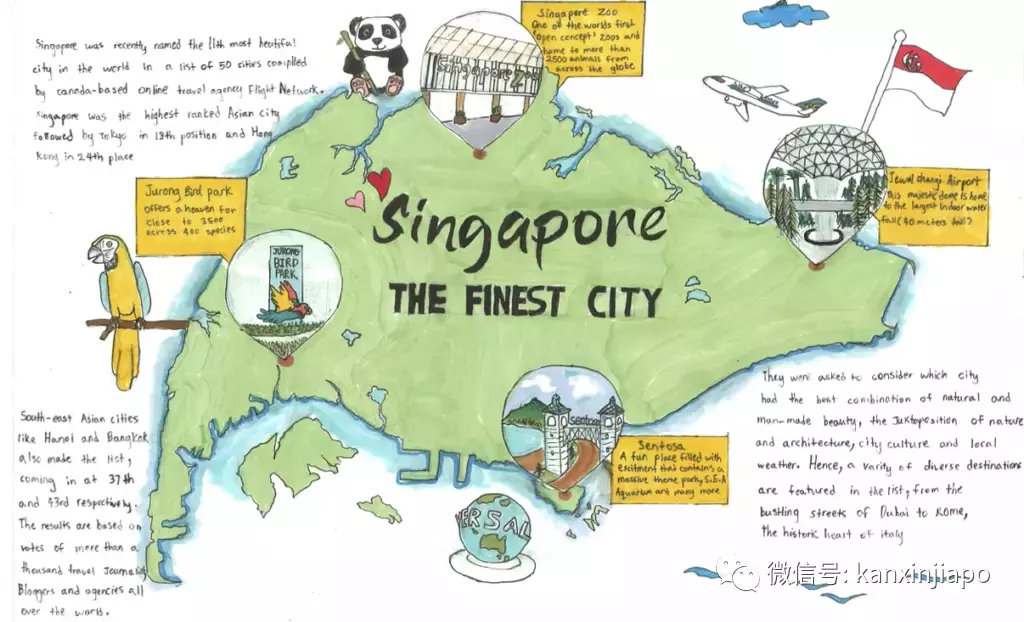 Singapore was recently named the 11th most beutiful
city in the world in a list of 50 cities compiled
by canada-based online travel agency Flight Network.
Singapore was the highest ranked Asian city
followed by Tokyo in 18th position and Hong
Kong in 24th place
Singapore Zoo
One of the worlds first
'open concept' zoos and
home to more than
2500 animals from
across the globe
Singapore Zoo
Jurong Bird park
offers a heaven for
close to 3500
across 400 species
JURONG
BIRD
PARK
Jewel changi Airport
this majestic dome is home
to the largest indoor water
fall (40 meters tall)
Singapore
THE FINEST CITY
South-east Asian cities
like Hanoi and Bangkok
also made the list,
coming in at 37th
and 43rd respectively.
The results are based on
votes of more than a
thousand travel Journalist
Bloggers and agencies all
over the world.
Sentosa
Sentosa
A fun place filled with
excitment that contains a
massive theme park, S.E.A
Aquarium and many more
ERSAL
They were asked to consider which city
had the best combination of natural and
man-made beauty, the Juxtoposition of nature
and architecture, city culture and local
weather. Hence, a varity of diverse destinations
are featured in the list, from the
bustling streets of Dubai to Rome,
the historic heart of italy
微信号: kanxinjiapo